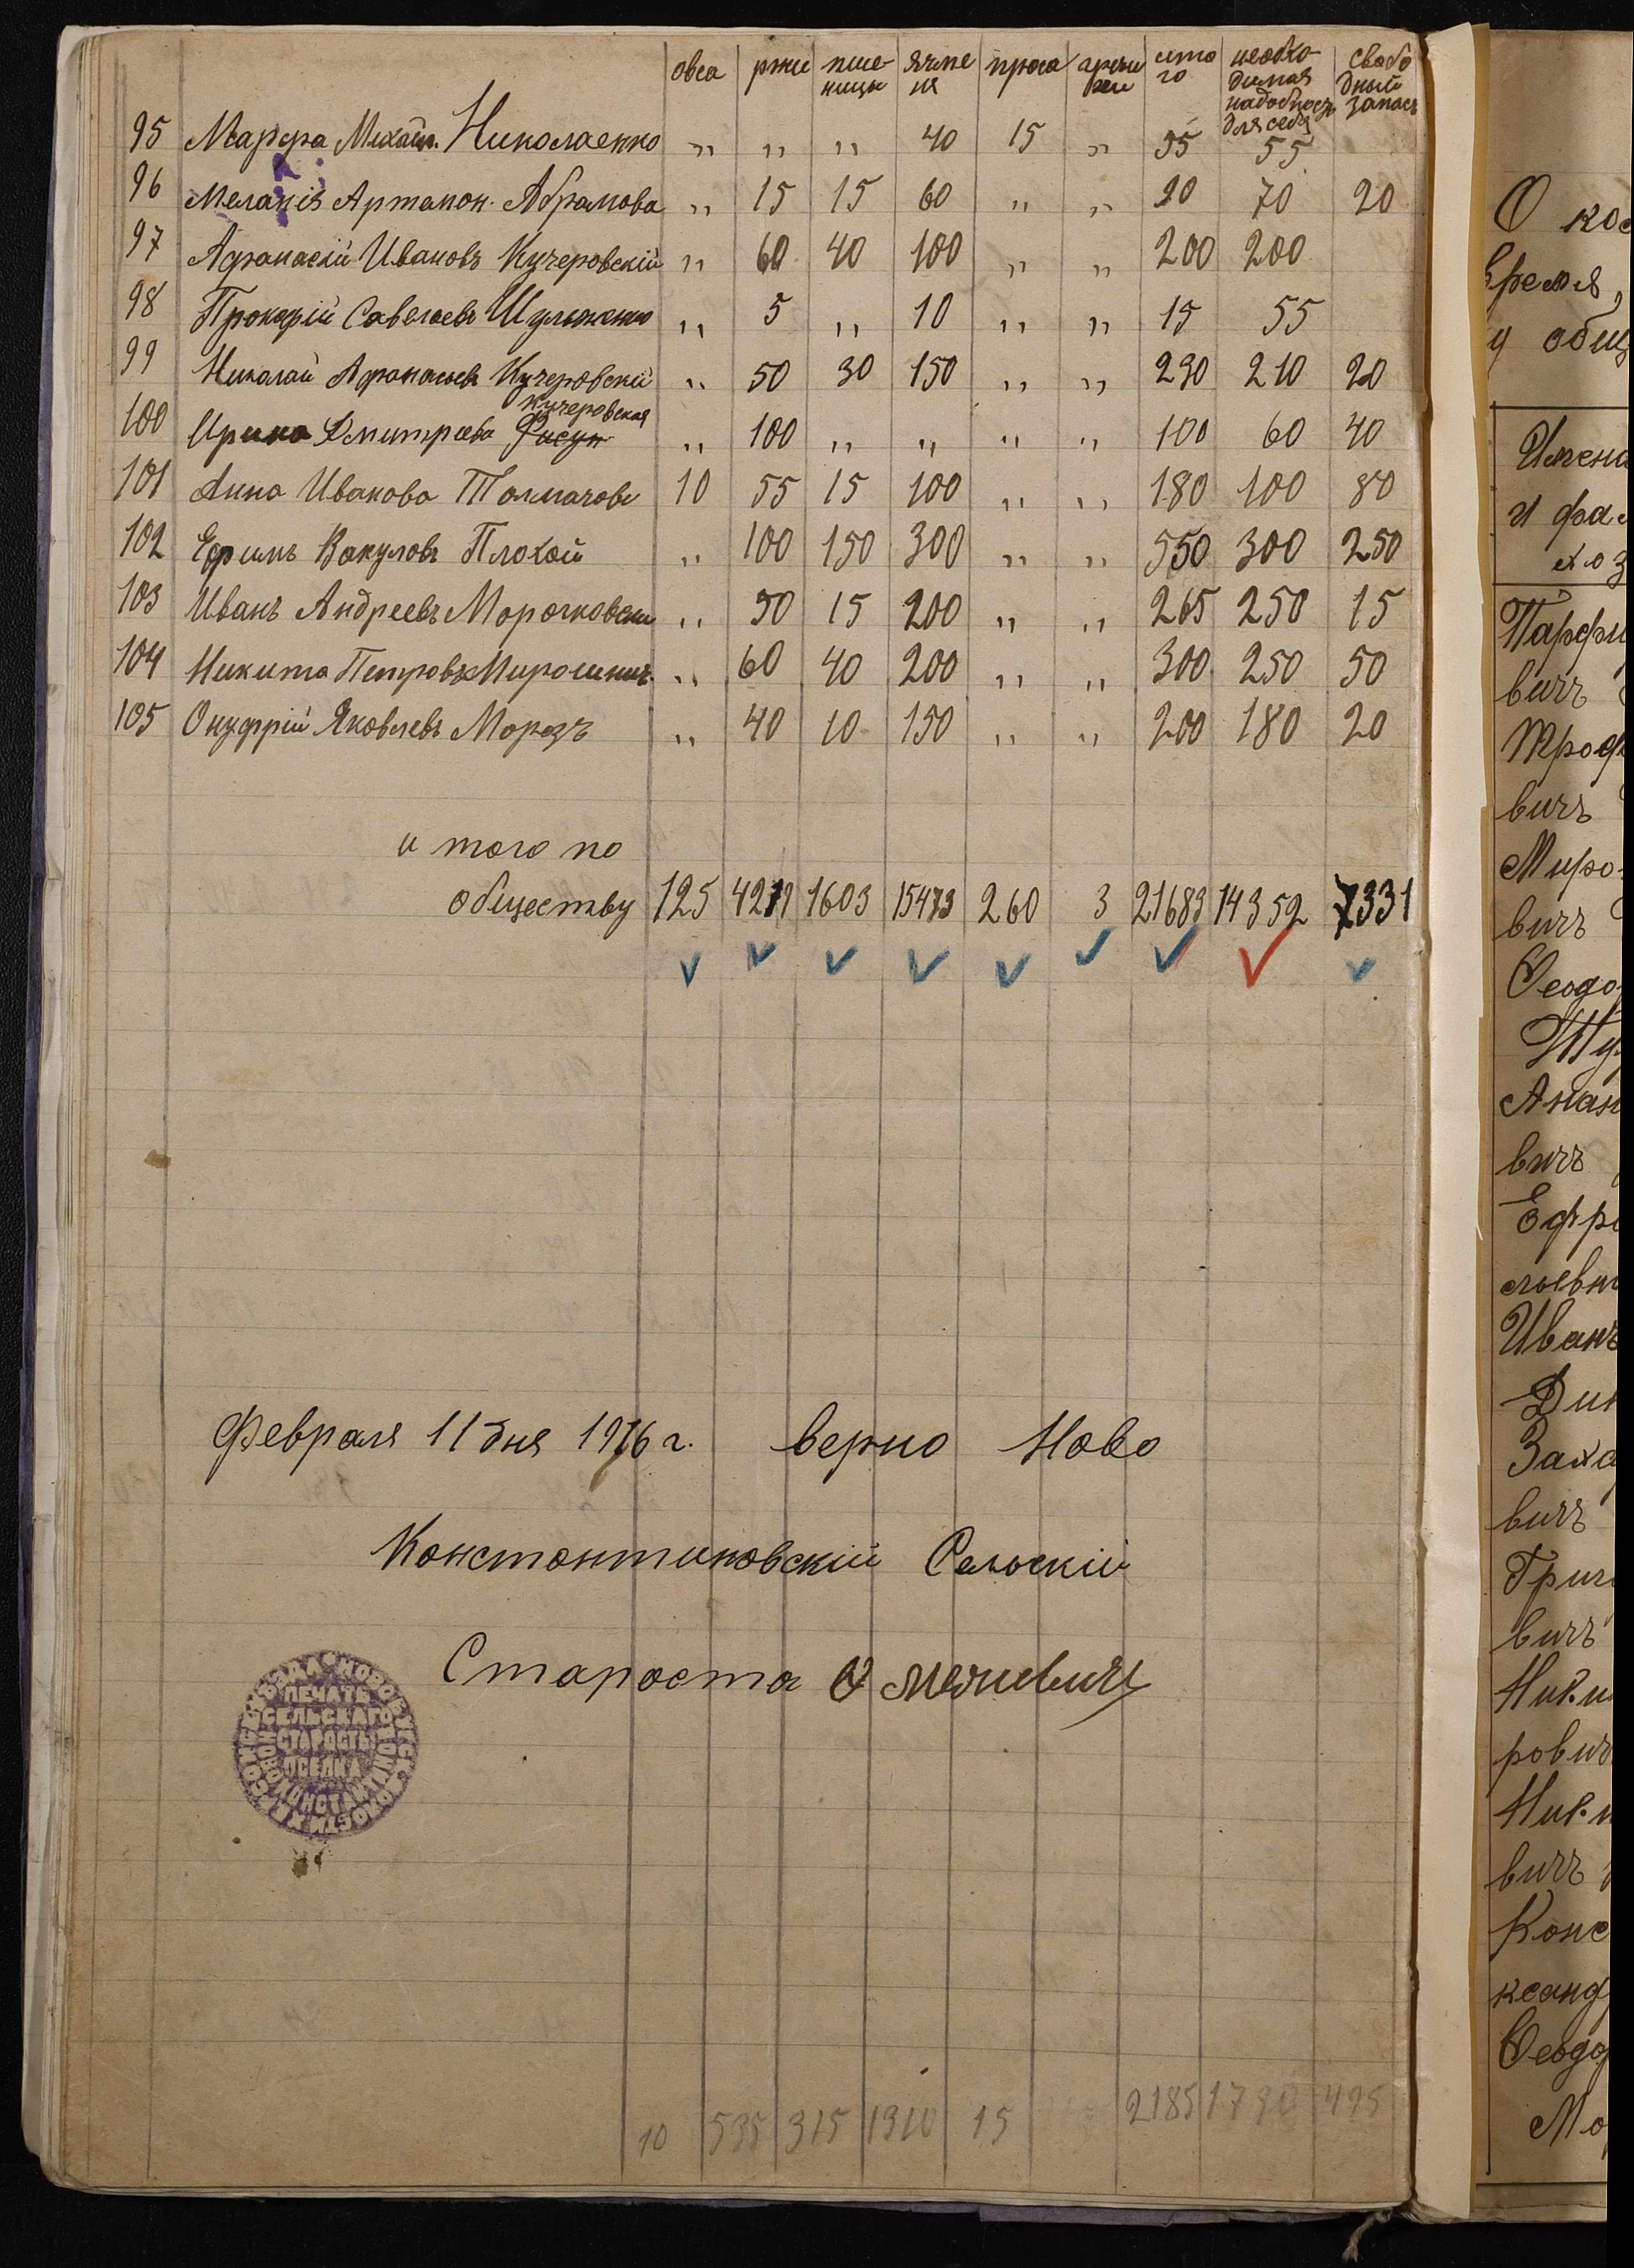 овса ржи пше- ячме проса гречи ито необхо- свобо
ницы ня хи го димая дный
надобность запасъ
для себя
95 Марфа Михайл. Николаенко „ „ „ 40 15 „ 55 55
96 Меланія Артамон. Абрамова „ 15 15 60 „ „ 90 70 20
97 Афанасій Ивановъ Кучеровскій „ 60 40 100 „ „ 200 200
98 Прокофій Савельевъ Шульженко „ 5 „ 10 „ „ 15 55
99 Николай Афанасьевъ Кучеровскій „ 50 30 150 „ „ 230 210 20
Кучеровская
100 Ирина Дмитріева „ 100 „ „ „ „ 100 60 40
101 Анна Иванова Толмачова 10 55 15 100 „ „ 180 100 80
102 Ефимъ Вакуловъ Плохой „ 100 150 300 „ „ 550 300 250
103 Иванъ Андреевъ „ 50 15 200 „ „ 265 250 15
104 Никита Петровъ Мирошнич. „ 60 40 200 „ „ 300 250 50
105 Онуфрій Яковлевъ Морозъ „ 40 10 150 „ „ 200 180 20
и того по
обществу 125 4219 1603 15473 260 3 21683 14352 7331
Февраля 11 дня 1916 г. верно Ново
Константиновскій Сельскій
Староста
ПЕЧАТЬ
СЕЛЬСКАГО
СТАРОСТЫ
ПСЕЛКА
10 535 315 1310 15 2185 1730 495
О
время,
у общ
Имена
и фа
хоз
Парфи
вичъ
Троф
вичъ
Миро
вичъ
Ѳеодо
Анан
вичъ
Ефр
льеви
Иванъ
Заха
вичъ
Григ
вичъ
Ники
рович
Ники
вичъ
Конс
ксанд
Ѳеодо
Мо